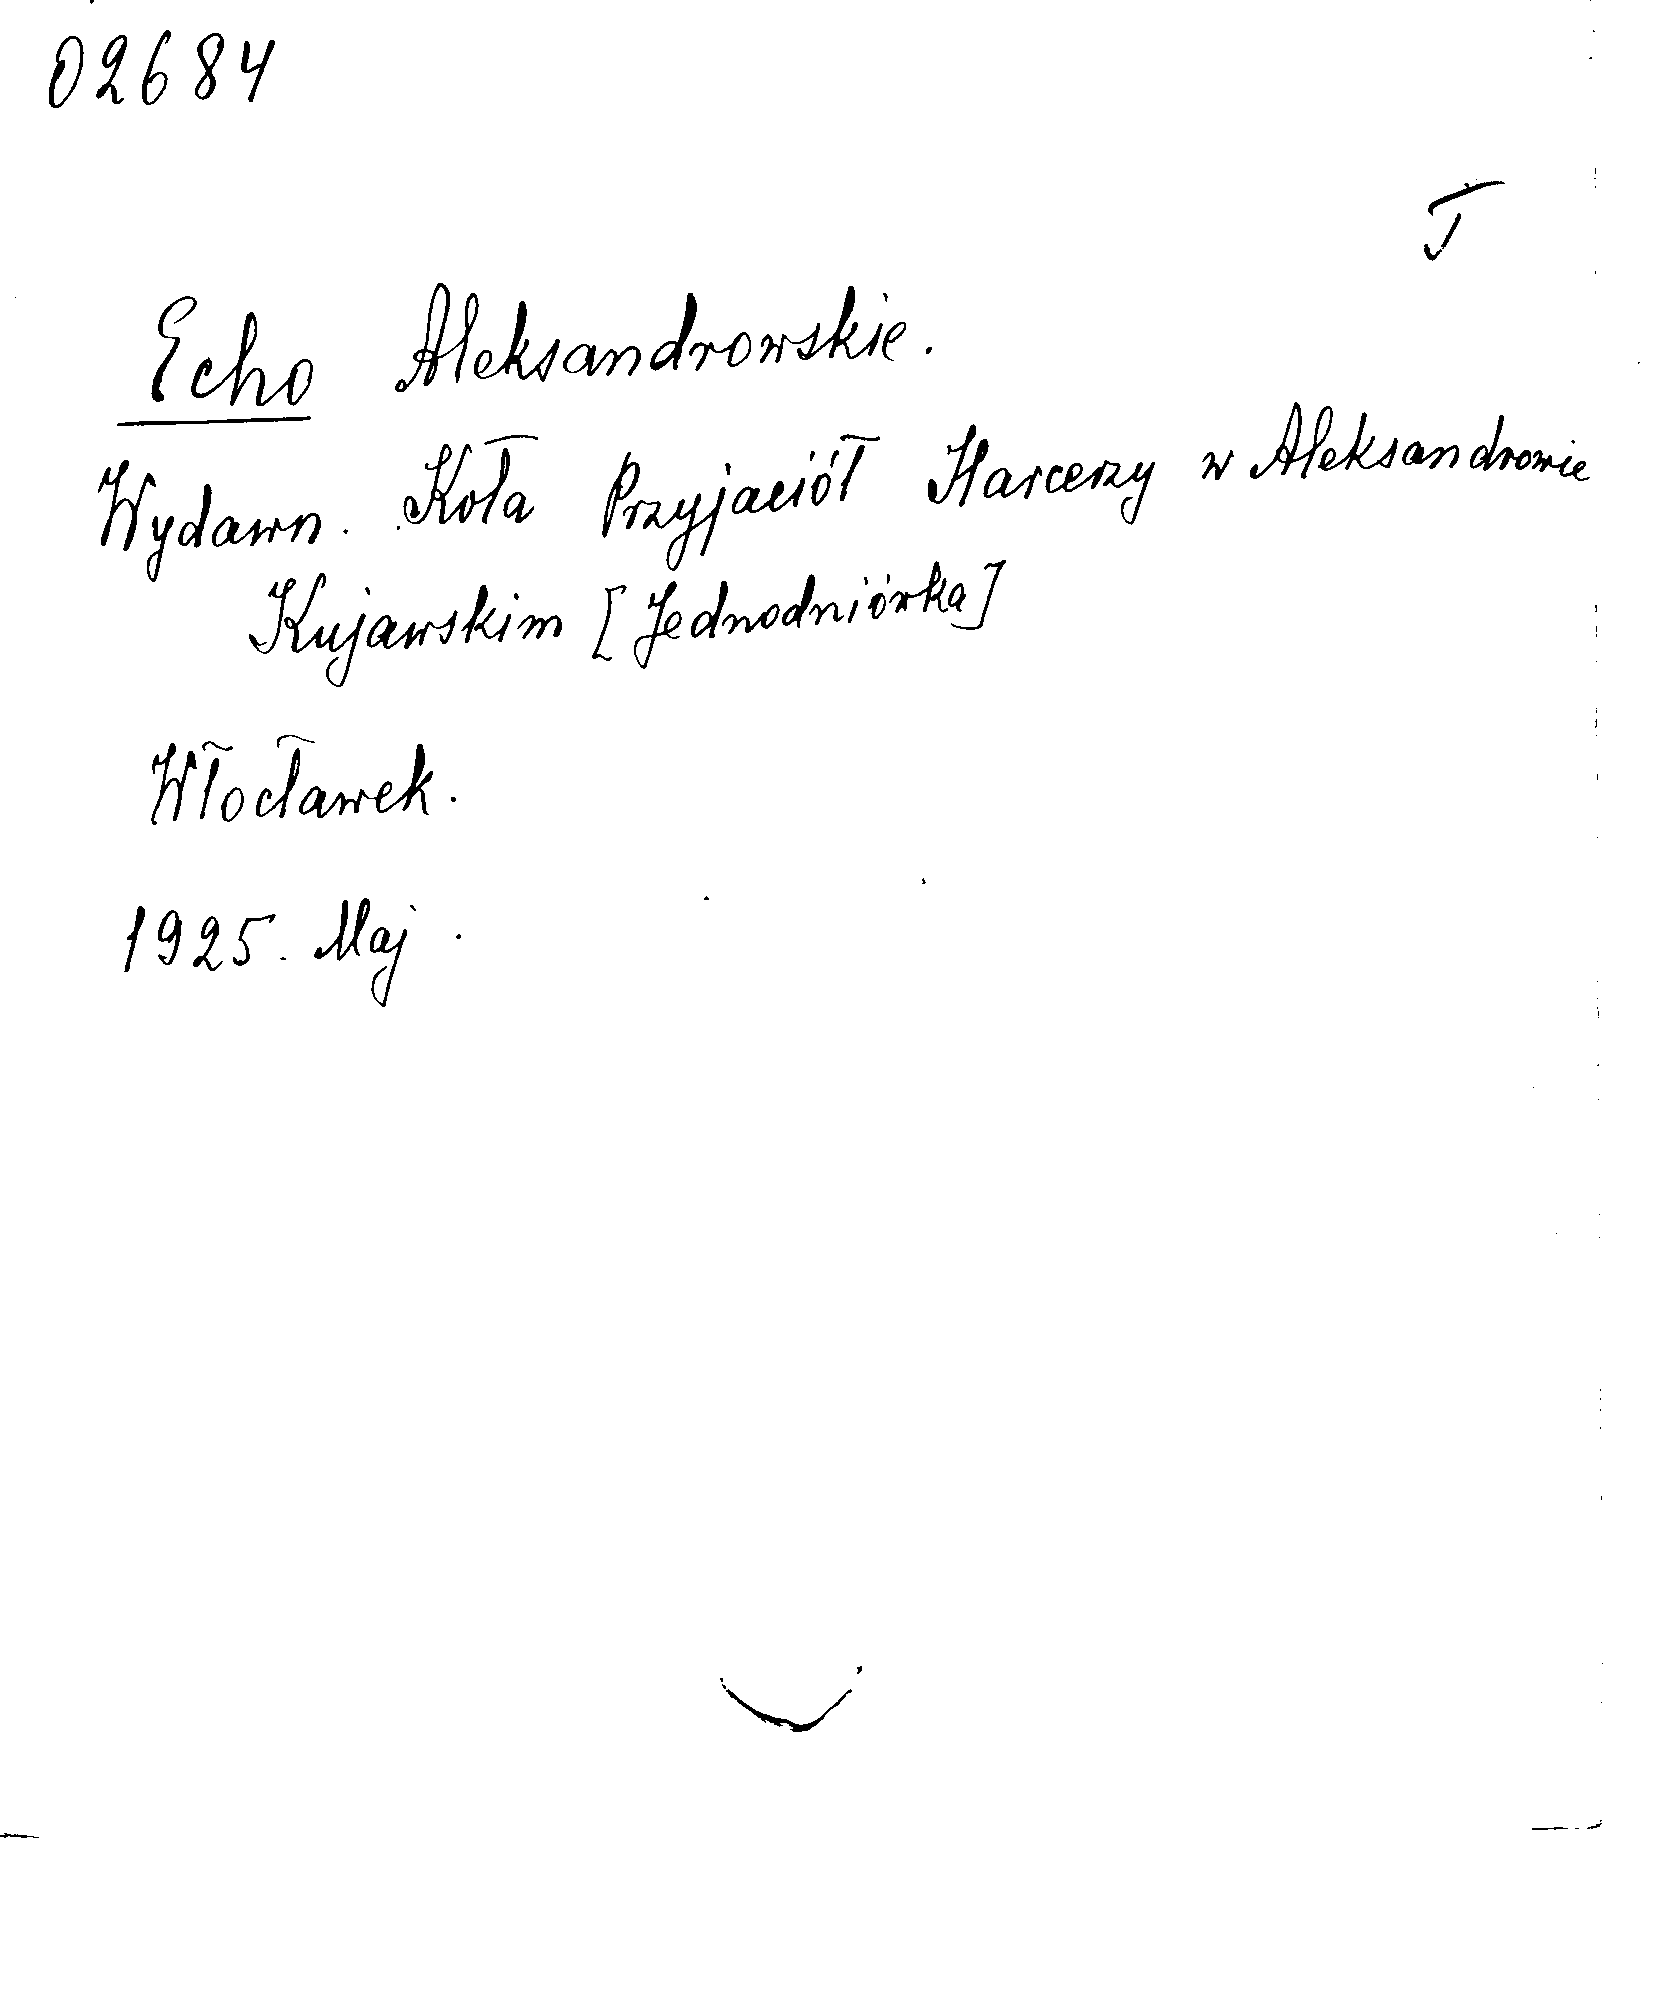 02684
J
Echo Aleksandrowskie.
Wydawn. Koła Przyjaciół Harcerzy w Aleksandrowie
Kujawskim [Jednodniówka]
Włocławek.
1925. Maj.